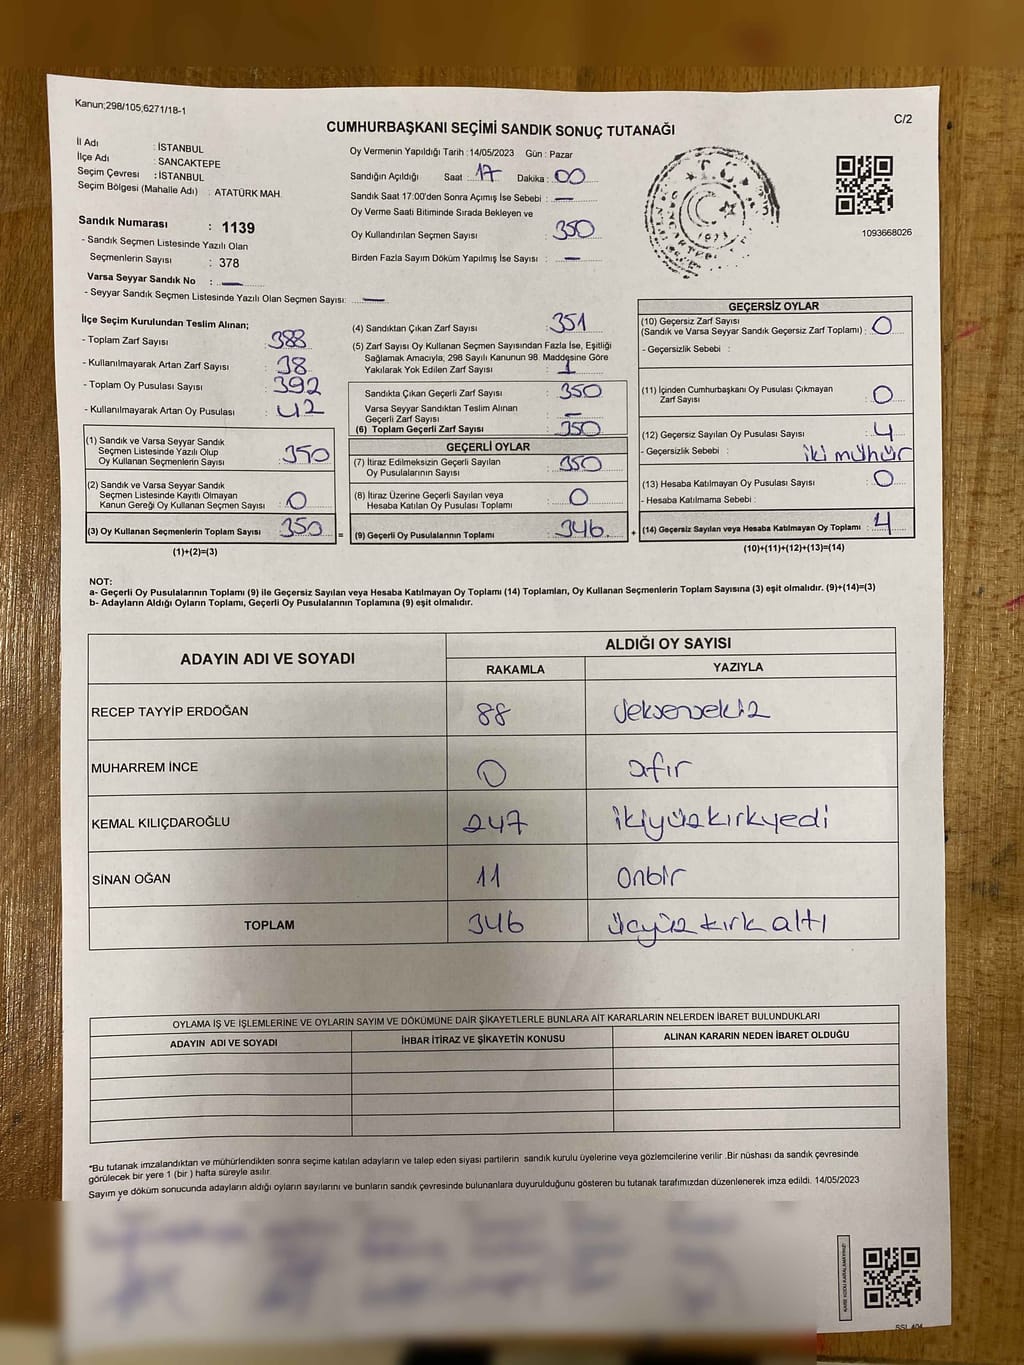 Kanun;298/105,6271/18-1
C/2
CUMHURBAŞKANI SEÇİMİ SANDIK SONUÇ TUTANAĞI
İl Adı : İSTANBUL
İlçe Adı : SANCAKTEPE
Seçim Çevresi : İSTANBUL
Seçim Bölgesi (Mahalle Adı) : ATATÜRK MAH.
Sandık Numarası : 1139
- Sandık Seçmen Listesinde Yazılı Olan
Seçmenlerin Sayısı : 378
Varsa Seyyar Sandık No : —
- Seyyar Sandık Seçmen Listesinde Yazılı Olan Seçmen Sayısı: —
Oy Vermenin Yapıldığı Tarih :14/05/2023 Gün : Pazar
Sandığın Açıldığı Saat : 17 Dakika : 00
Sandık Saat 17:00'den Sonra Açımış İse Sebebi : —
Oy Verme Saati Bitiminde Sırada Bekleyen ve
Oy Kullandırılan Seçmen Sayısı : 350
Birden Fazla Sayım Döküm Yapılmış İse Sayısı : —
T.C.
SANCAKTEPE
1093668026
İlçe Seçim Kurulundan Teslim Alınan;
- Toplam Zarf Sayısı : 388
- Kullanılmayarak Artan Zarf Sayısı : 38
- Toplam Oy Pusulası Sayısı : 392
- Kullanılmayarak Artan Oy Pusulası : 42
(1) Sandık ve Varsa Seyyar Sandık
Seçmen Listesinde Yazılı Olup
Oy Kullanan Seçmenlerin Sayısı : 350
(2) Sandık ve Varsa Seyyar Sandık
Seçmen Listesinde Kayıtlı Olmayan
Kanun Gereği Oy Kullanan Seçmen Sayısı : 0
(3) Oy Kullanan Seçmenlerin Toplam Sayısı : 350
(1)+(2)=(3)
=
(4) Sandıktan Çıkan Zarf Sayısı : 351
(5) Zarf Sayısı Oy Kullanan Seçmen Sayısından Fazla İse, Eşitliği
Sağlamak Amacıyla; 298 Sayılı Kanunun 98. Maddesine Göre
Yakılarak Yok Edilen Zarf Sayısı : 1
Sandıkta Çıkan Geçerli Zarf Sayısı : 350
Varsa Seyyar Sandıktan Teslim Alınan
Geçerli Zarf Sayısı : —
(6) Toplam Geçerli Zarf Sayısı : 350
GEÇERLİ OYLAR
(7) İtiraz Edilmeksizin Geçerli Sayılan
Oy Pusulalarının Sayısı : 350
(8) İtiraz Üzerine Geçerli Sayılan veya
Hesaba Katılan Oy Pusulası Toplamı : 0
(9) Geçerli Oy Pusulalarının Toplamı : 346
+
GEÇERSİZ OYLAR
(10) Geçersiz Zarf Sayısı
(Sandık ve Varsa Seyyar Sandık Geçersiz Zarf Toplamı) : 0
- Geçersizlik Sebebi :
(11) İçinden Cumhurbaşkanı Oy Pusulası Çıkmayan
Zarf Sayısı : 0
(12) Geçersiz Sayılan Oy Pusulası Sayısı : 4
- Geçersizlik Sebebi : iki mühür
(13) Hesaba Katılmayan Oy Pusulası Sayısı : 0
- Hesaba Katılmama Sebebi :
(14) Geçersiz Sayılan veya Hesaba Katılmayan Oy Toplamı : 4
(10)+(11)+(12)+(13)=(14)
NOT:
a- Geçerli Oy Pusulalarının Toplamı (9) ile Geçersiz Sayılan veya Hesaba Katılmayan Oy Toplamı (14) Toplamları, Oy Kullanan Seçmenlerin Toplam Sayısına (3) eşit olmalıdır. (9)+(14)=(3)
b- Adayların Aldığı Oyların Toplamı, Geçerli Oy Pusulalarının Toplamına (9) eşit olmalıdır.
ADAYIN ADI VE SOYADI
ALDIĞI OY SAYISI
RAKAMLA YAZIYLA
RECEP TAYYİP ERDOĞAN 88 seksensekiz
MUHARREM İNCE 0 sıfır
KEMAL KILIÇDAROĞLU 247 ikiyüzkırkyedi
SİNAN OĞAN 11 onbir
TOPLAM 346 üçyüz kırk altı
OYLAMA İŞ VE İŞLEMLERİNE VE OYLARIN SAYIM VE DÖKÜMÜNE DAİR ŞİKAYETLERLE BUNLARA AİT KARARLARIN NELERDEN İBARET BULUNDUKLARI
ADAYIN ADI VE SOYADI İHBAR İTİRAZ VE ŞİKAYETİN KONUSU ALINAN KARARIN NEDEN İBARET OLDUĞU
*Bu tutanak imzalandıktan ve mühürlendikten sonra seçime katılan adayların ve talep eden siyası partilerin sandık kurulu üyelerine veya gözlemcilerine verilir .Bir nüshası da sandık çevresinde
görülecek bir yere 1 (bir ) hafta süreyle asılır.
Sayım ve döküm sonucunda adayların aldığı oyların sayılarını ve bunların sandık çevresinde bulunanlara duyurulduğunu gösteren bu tutanak tarafımızdan düzenlenerek imza edildi. 14/05/2023
KARE KODU KARALAMAYINIZ!